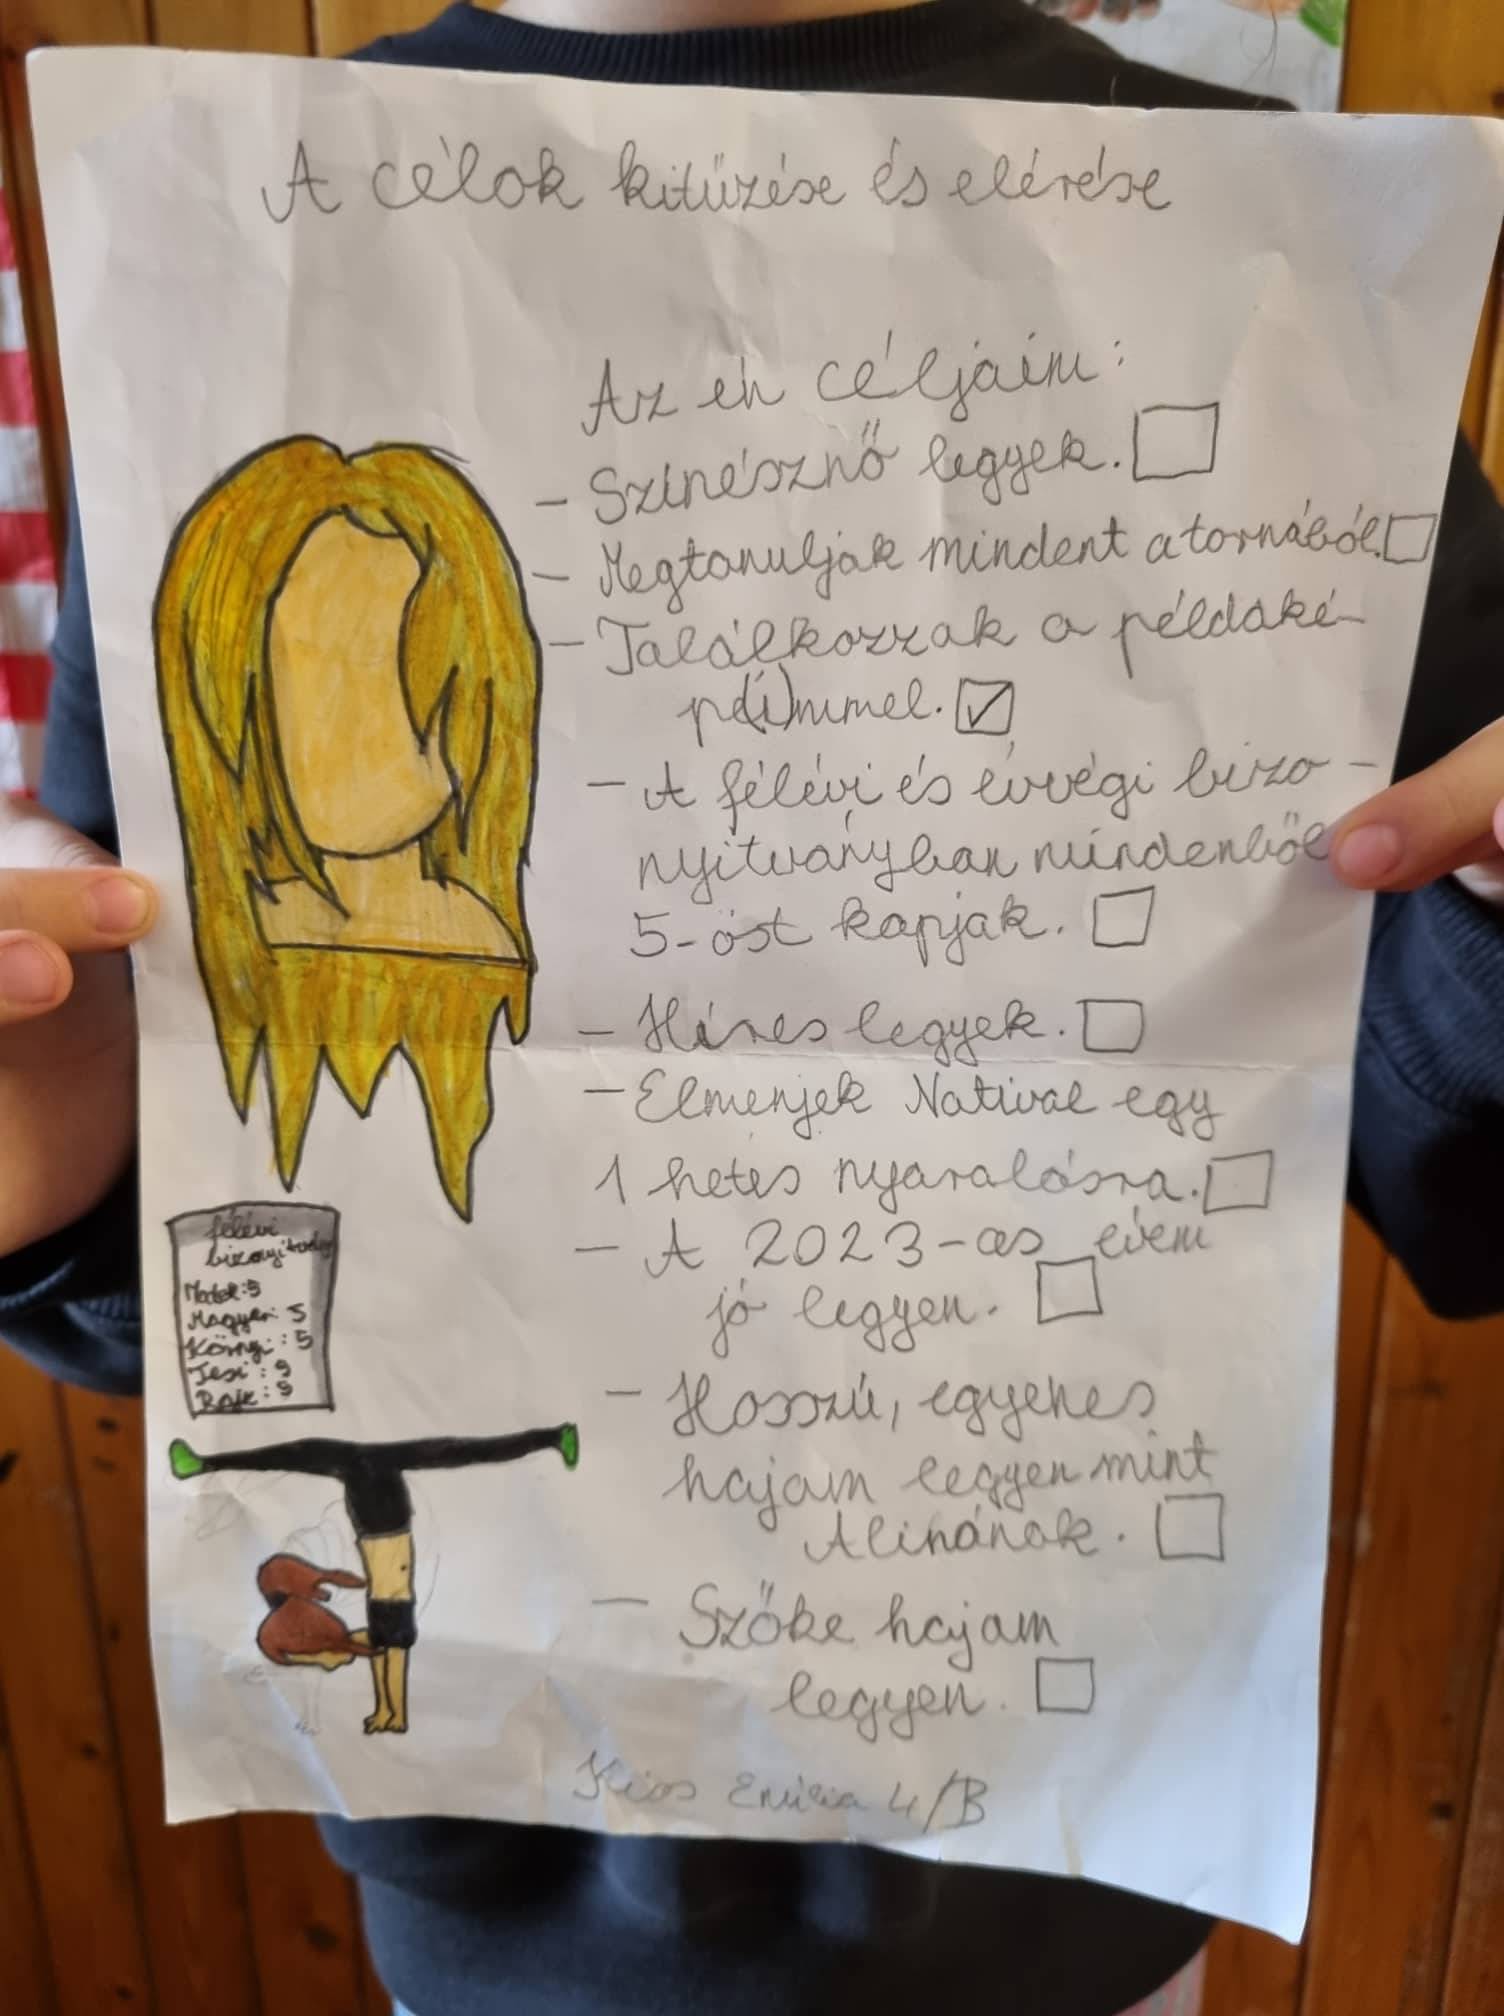 A célok kitűzése és elérése
Az én céljaim:
- Színésznő legyek.
- Megtanuljak mindent a tornából.
- Találkozzak a példaké-
pe(i)mmel.
- A félévi és évvégi bizo-
nyítványban mindenből
5-öst kapjak.
- Híres legyek.
- Elmenjek Natival egy
1 hetes nyaralásra.
- A 2023-as évem
jó legyen.
- Hosszú, egyenes
hajam legyen mint
Alinának.
- Szőke hajam
legyen.
félévi
bizonyítvány
Matek: 5
Magyar: 5
Környi: 5
Tesi: 5
Rajz: 5
Kiss Emília 4/B